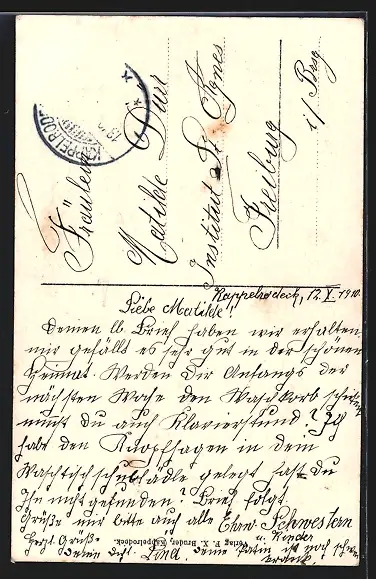 Fräulein
Matilde Dürr
Institut St. Agnes
Freiburg
i/ Brsg
KAPPELRODECK
Kappelrodeck, 12.X.1910.
Liebe Matilde!
Deinen lb. Brief haben wir erhalten
mir gefällts es sehr gut in der schönen
Heimat. Werden Dir Anfangs der
nächsten Woche den Waschkorb schicken
nimst du auch Klavierstund? Ich
habe den Knopfsagen in dem
Waschtischschubfädle gelegt hast Du
Ihn nicht gefunden. Brief folgt.
Grüße mir bitte auch alle Ehrw. Schwestern
u. Kinder
Herzl. Grüße
Deine Lina. Deine Patin ist noch schwer
krank.
Verlag F. X. Bruder, Kappelrodeck.